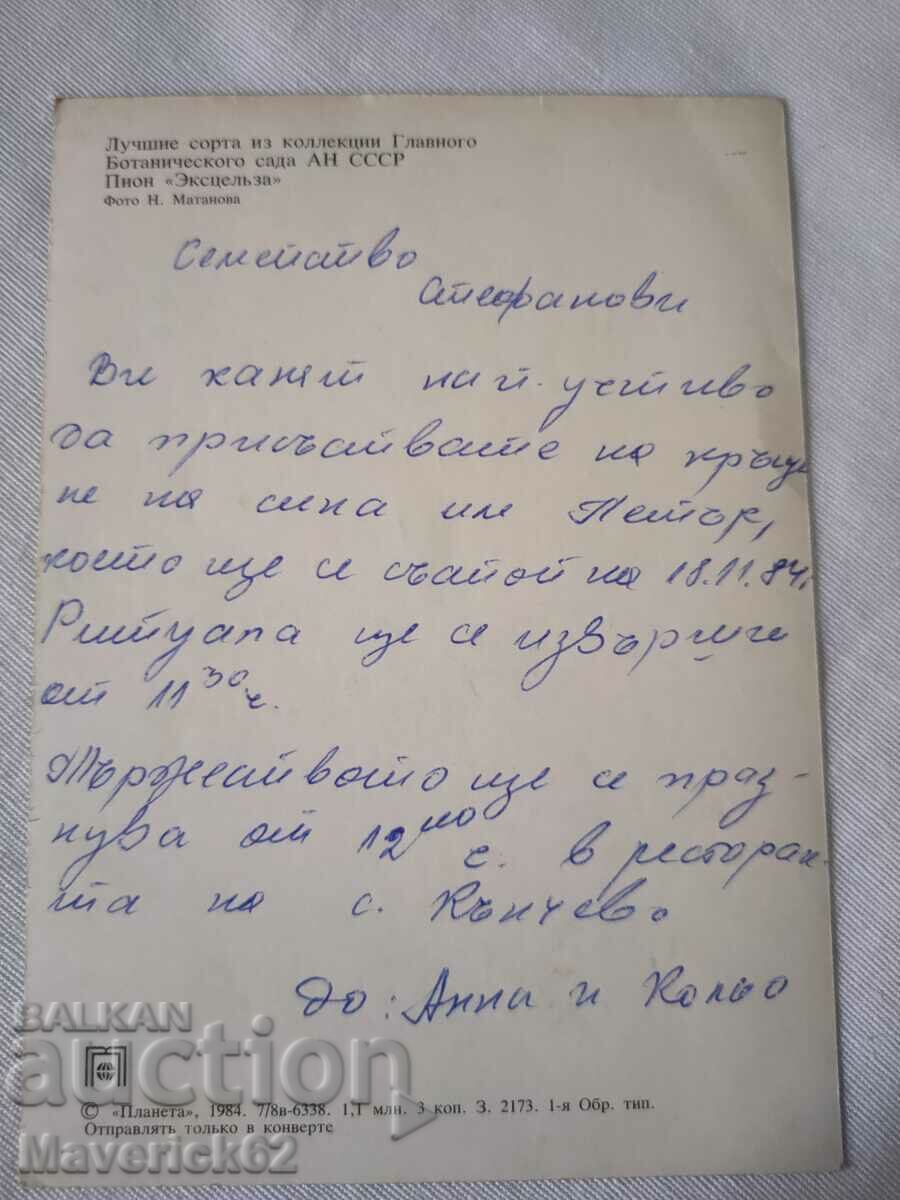 Лучшие сорта из коллекции Главного
Ботанического сада АН СССР
Пион «Эксцельза»
Фото Н. Матанова
Семейство
Стефанови
Ви канят най-учтиво
да присъствате на кръще
не на сина им Петър,
което ще се състои на 18.11.84г.
Ритуала ще се извърши
от 11 30 ч.
Тържеството ще се праз-
нува от 12 00 ч. в ресторан-
та на с. Кънчево
до: Анна и Кольо
BALKAN
auction
© «Планета», 1984. 7/8в-6338. 1,1 млн. 3 коп. З. 2173. 1-я Обр. тип.
Отправлять только в конверте
Maverick62